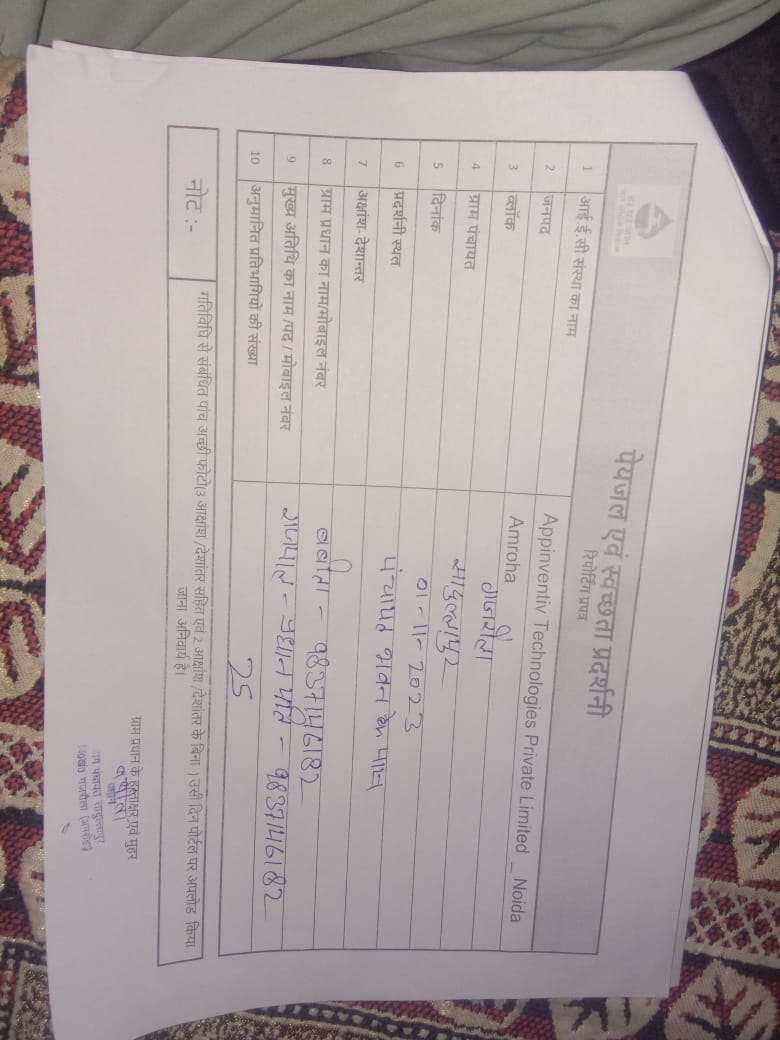 पेयजल एवं स्वच्छता प्रदर्शनी
रिपोर्टिंग प्रपत्र
1 आई.ई.सी संस्था का नाम Appinventiv Technologies Private Limited _ Noida
2 जनपद Amroha
3 ब्लॉक गजरौला
4 ग्राम पंचायत
5 दिनांक 01-11-2023
6 प्रदर्शनी स्थल पंचायत भवन के पास
7 अक्षांश- देशान्तर
8 ग्राम प्रधान का नाम/मोबाइल नंबर बबीता - 9837146182
9 मुख्य अतिथि का नाम /पद / मोबाइल नंबर राजपाल - प्रधान पति - 9837146182
10 अनुमानित प्रतिभागियों की संख्या 25
नोट :- गतिविधि से संबंधित पांच अच्छी फोटो(3 आक्षांश /देशांतर सहित एवं 2 आक्षांश /देशांतर के बिना ) उसी दिन पोर्टल पर अपलोड किया
जाना अनिवार्य है।
ग्राम प्रधान के हस्ताक्षर एवं मुहर